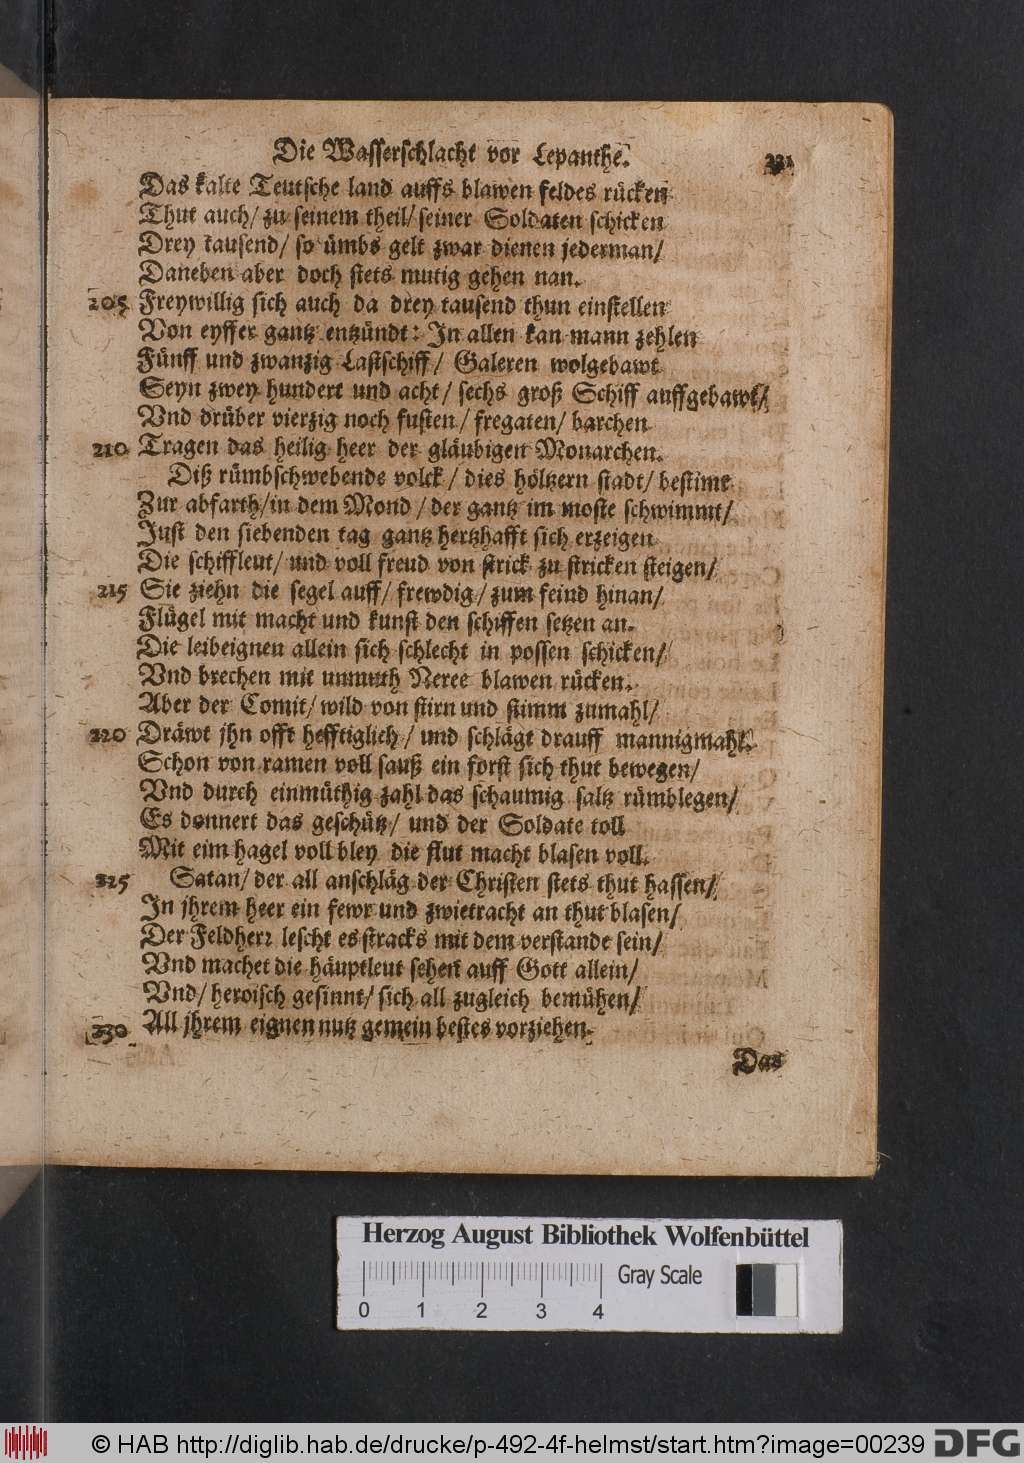 Die Wasserschlacht vor Lepanthe. 231
Das kalte Teutsche land auffs blawen feldes rücken
Thut auch/ zu seinem theil/ seiner Soldaten schicken
Drey tausend/ so ümbs gelt zwar dienen jederman/
Daneben aber doch stets mutig gehen nan.
205 Freywillig sich auch da drey tausend thun einstellen
Von eyffer gantz entzündt: In allen kan mann zehlen
Fünff und zwanzig Lastschiff/ Galeren wolgebawt
Seyn zwey hundert und acht/ sechs groß Schiff auffgebawt/
Vnd drüber vierzig noch fusten/ fregaten/ barchen
210 Tragen das heilig heer der gläubigen Monarchen.
Diß rümbschwebende volck/ dies höltzern stadt/ bestimt
Zur abfarth/ in dem Mond/ der gantz im moste schwimmt/
Just den siebenden tag gantz hertzhafft sich erzeigen
Die schiffleut/ und voll freud von strick zu stricken steigen/
215 Sie ziehn die segel auff/ frewdig/ zum feind hinan/
Flügel mit macht und kunst den schiffen setzen an.
Die leibeignen allein sich schlecht in possen schicken/
Vnd brechen mit unmuth Neree blawen rücken.
Aber der Comit/ wild von stirn und stimm zumahl/
220 Dräwt jhn offt hefftiglich/ und schlägt drauff mannigmahl.
Schon von ramen voll sauß ein forst sich thut bewegen/
Vnd durch einmüthig zahl das schaumig saltz rümblegen/
Es donnert das geschütz/ und der Soldate toll
Mit eim hagel voll bley die flut macht blasen voll.
225 Satan/ der all anschläg der Christen stets thut hassen/
In jhrem heer ein fewr und zwietracht an thut blasen/
Der Feldherr lescht es stracks mit dem verstande sein/
Vnd machet die häuptleut sehen auff Gott allein/
Vnd/ heroisch gesinnt/ sich all zugleich bemühen/
230 All jhrem eignen nutz gemein bestes vorziehen.
Das
Herzog August Bibliothek Wolfenbüttel
0 1 2 3 4 Gray Scale
© HAB http://diglib.hab.de/drucke/p-492-4f-helmst/start.htm?image=00239 DFG